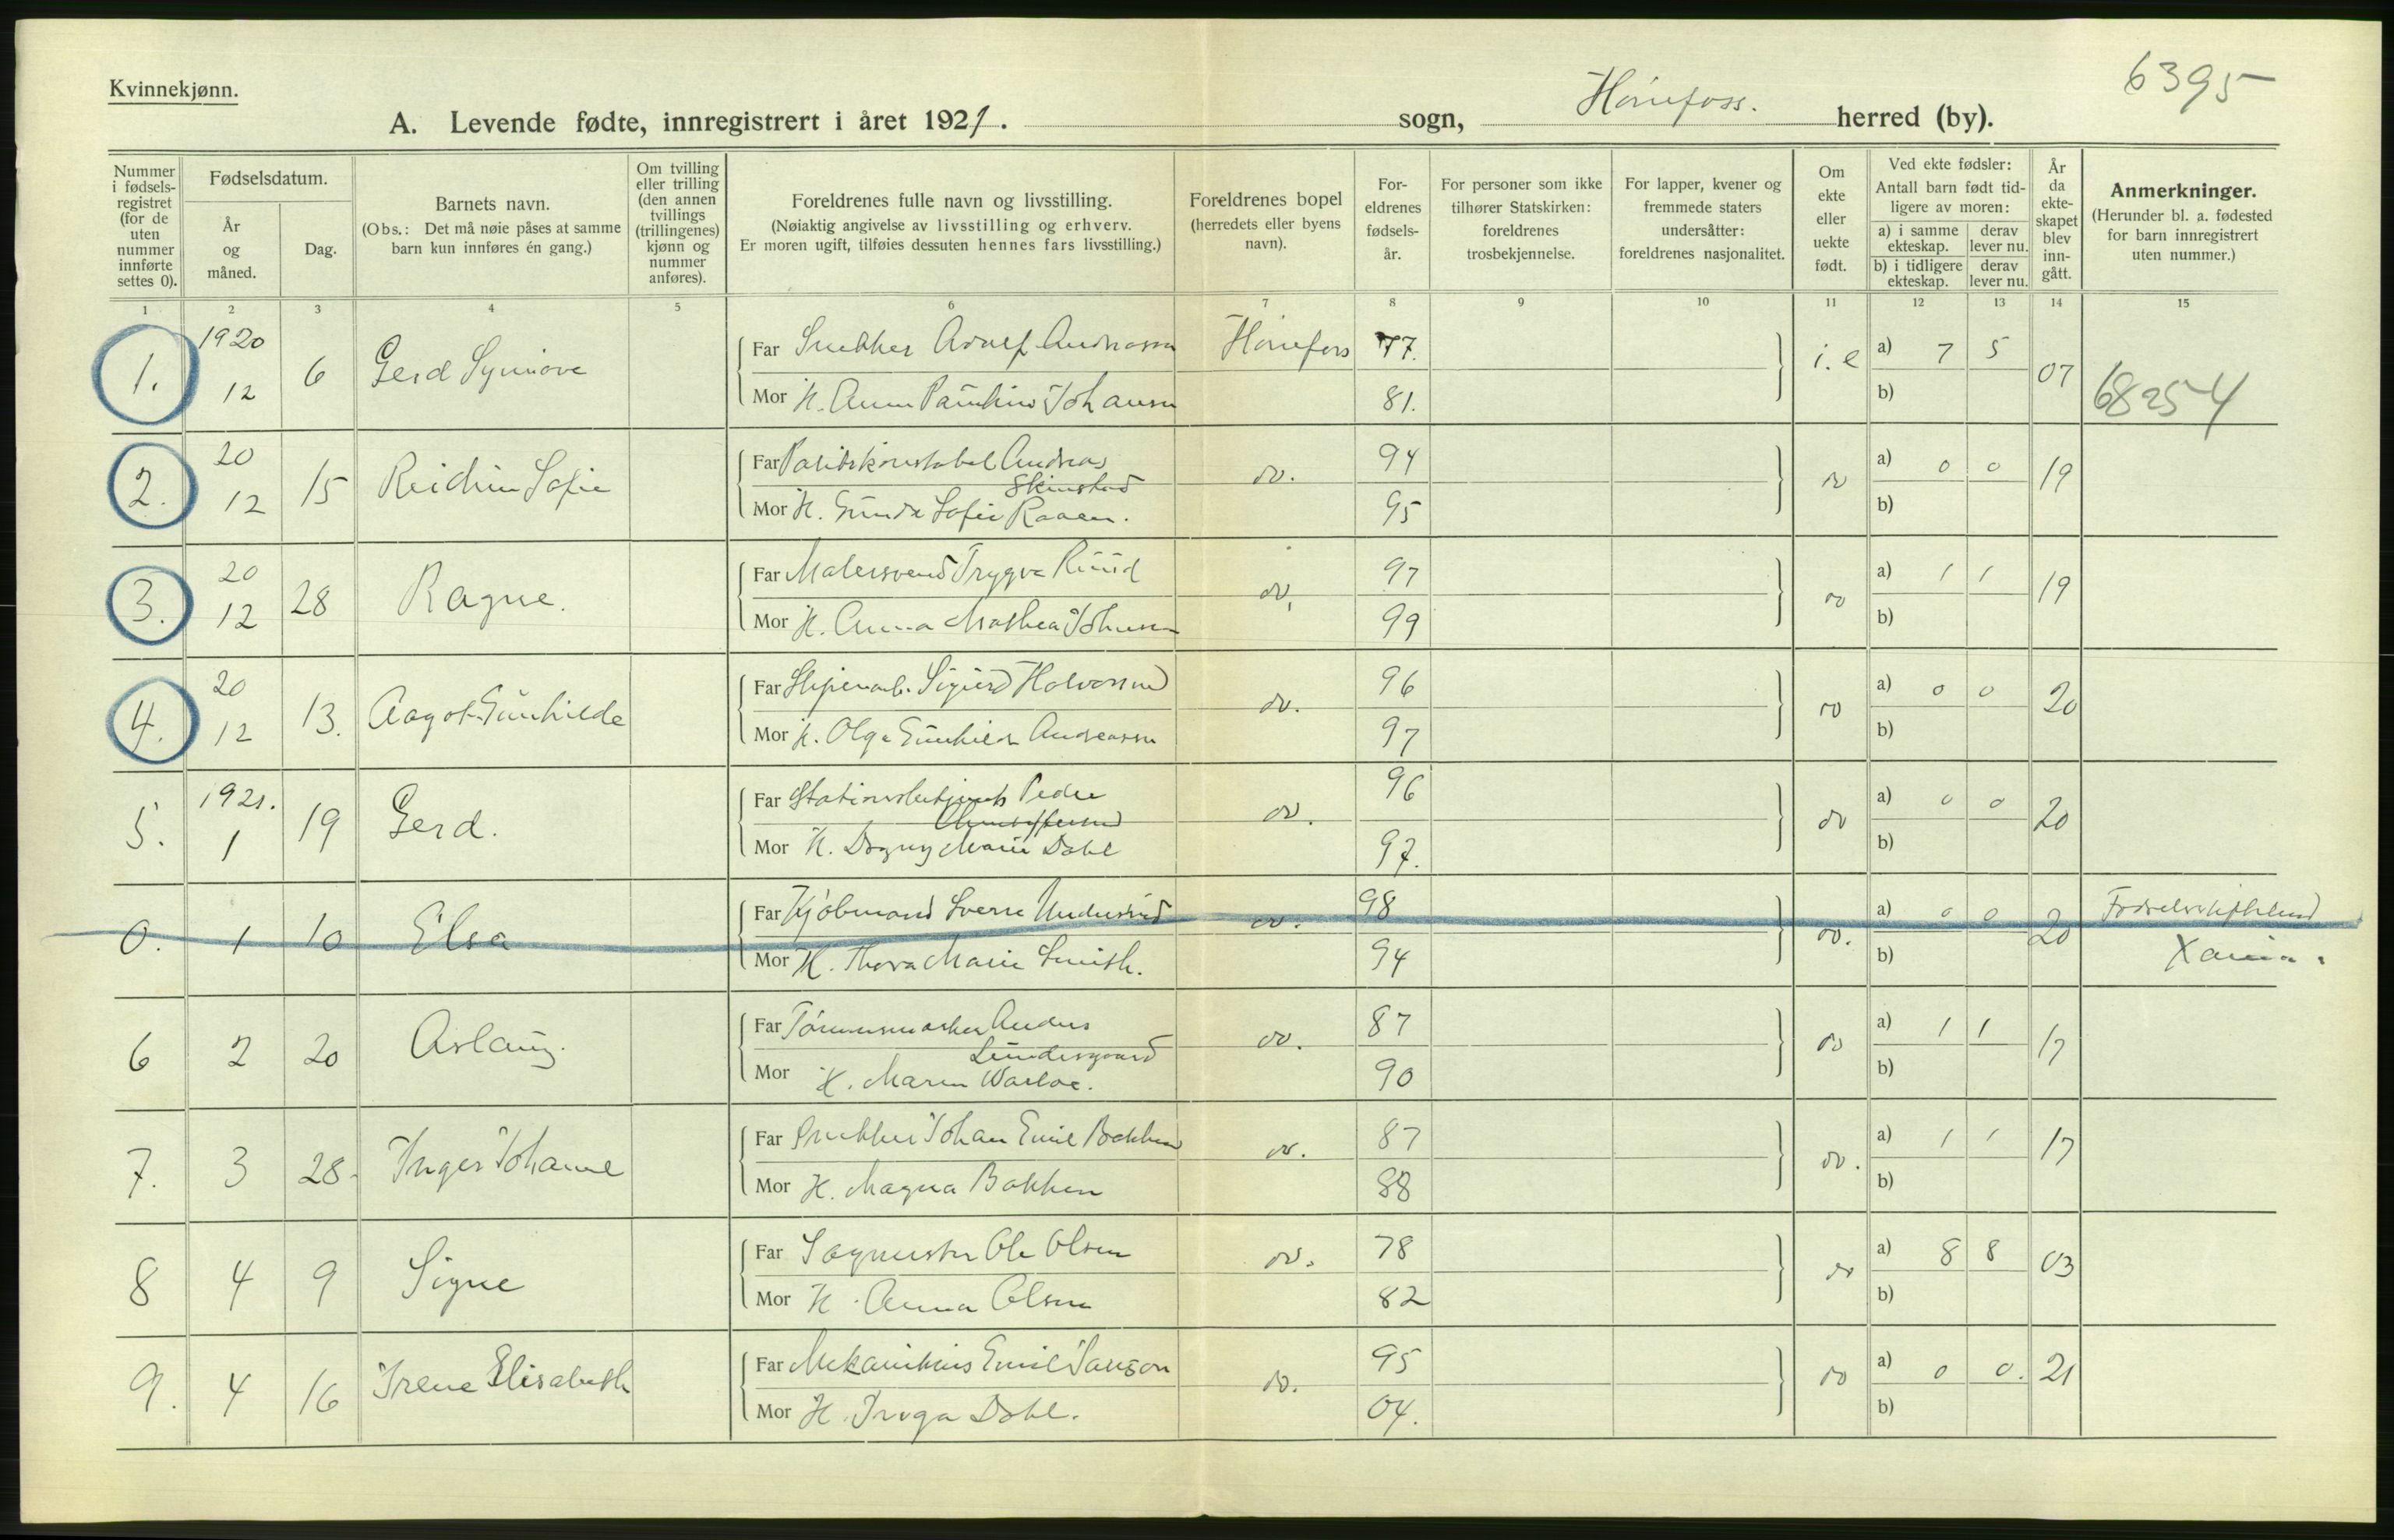 Kvinnekjønn.
6395
A. Levende fødte, innregistrert i året 1921. sogn, Hønefoss. herred (by).
Nummer i fødsels-registret (for de uten nummer innførte settes 0).
Fødselsdatum.
År og måned.
Dag.
Barnets navn.
(Obs.: Det må nøie påses at samme barn kun innføres én gang.)
Om tvilling eller trilling (den annen tvillings (trillingenes) kjønn og nummer anføres).
Foreldrenes fulle navn og livsstilling.
(Nøiaktig angivelse av livsstilling og erhverv.
Er moren ugift, tilføies dessuten hennes fars livsstilling.)
Foreldrenes bopel
(herredets eller byens navn).
For-eldrenes fødsels-år.
For personer som ikke tilhører Statskirken: foreldrenes trosbekjennelse.
For lapper, kvener og fremmede staters undersåtter: foreldrenes nasjonalitet.
Om ekte eller uekte født.
Ved ekte fødsler:
Antall barn født tid-ligere av moren:
a) i samme ekteskap.
derav lever nu.
b) i tidligere ekteskap.
derav lever nu.
År da ekte-skapet blev inn-gått.
Anmerkninger.
(Herunder bl. a. fødested for barn innregistrert uten nummer.)
1 2 3 4 5 6 7 8 9 10 11 12 13 14 15
1. 1920 12 6 Gerd Synnøve
Far Snekker Adolf Andreassen Hønefoss 77. i. e a) 7 5 07
Mor H. Anna Pauline Johansen 81. b) 68254
2. 20 12 15 Reidun Sofie
Far Politikonstabel Andreas Skinstad do. 94 do a) 0 0 19
Mor H. Gunda Sofie Raaen. 95 b)
3. 20 12 28 Ragne.
Far Malersvend Trygve Ruud do. 97 do a) 1 1 19
Mor H. Anna Mathea Johnsen 99 b)
4. 20 12 13. Aagot Gunhilde
Far Sliperiarb. Sigurd Halvorsen do. 96 do a) 0 0 20
Mor H. Olga Gunhild Andreassen 97 b)
5. 1921. 1 19 Gerd.
Far Stationsbetjent Peder do. 96 do a) 0 0 20
Mor H. Dagny Marie Dahl 97. b)
0. 1 10 Elsa
Far Kjøbmand Sverre do. 98 do. a) 0 0 20 Fødselsstiftelsen
Mor H. Thora Marie Smith. 94 b) Xania.
6 2 20 Aslaug.
Far Tømmermerker Anders Lundesgaard do. 87 do a) 1 1 17
Mor H. Maren Warloe. 90 b)
7. 3 28. Inger Johanne
Far Snekker Johan Emil Bakken do. 87 do. a) 1 1 17
Mor H. Magna Bakken 88 b)
8 4 9 Signe
Far Sagmester Ole Olsen do. 78 do a) 8 8 03
Mor H. Anna Olsen 82 b)
9. 4 16 Irene Elisabeth
Far Mekanikus Emil Janson do. 95 do a) 0 0. 21
Mor H. Inga Dahl. 04. b)